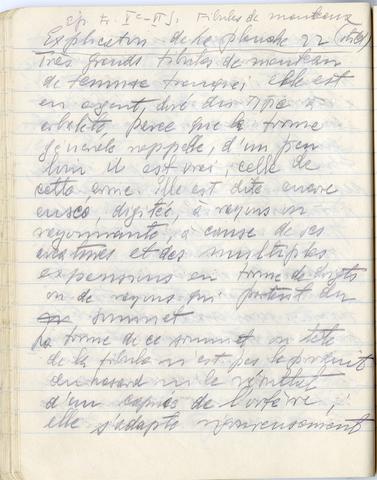 Ep. fr. Iᵉ-IIᵉ S. Fibules de manteaux
Explication de la planche 22
Très grande fibule de manteau
de femme franque; elle est
en argent, dire du type à
arbalète, parce que la forme
générale rappelle, d'un peu
loin il est vrai, celle de
cette arme. Elle est dite encore
ansée, digitée, à rayons ou
rayonnante, à cause de ses
et des multiples
expansions en forme de digts
ou de rayons qui partent du
sommet
La forme de ce sommet ou tête
de la fibule n'est pas le produit
du hasard ni le résultat
d'un caprice de l'orfèvre;
elle s'adapte rigoureusement